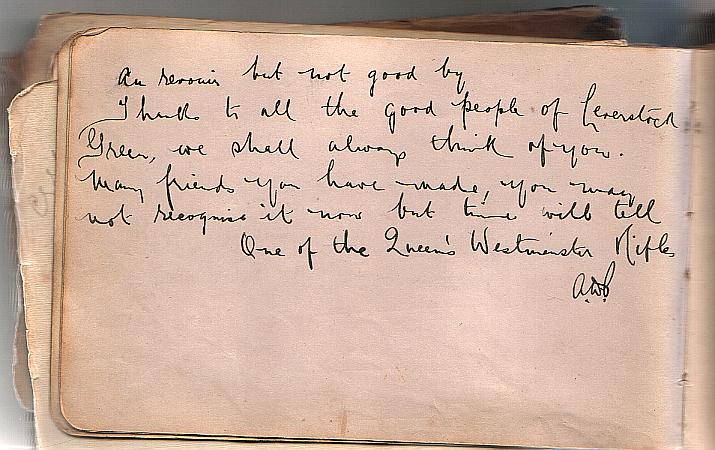 Au revoir but not good by
Thanks to all the good people of Leverstock
Green, we shall always think of you.
Many friends you have made, you may
not recognise it now but time will tell
One of the Queen's Westminster Rifles
A.W.P.